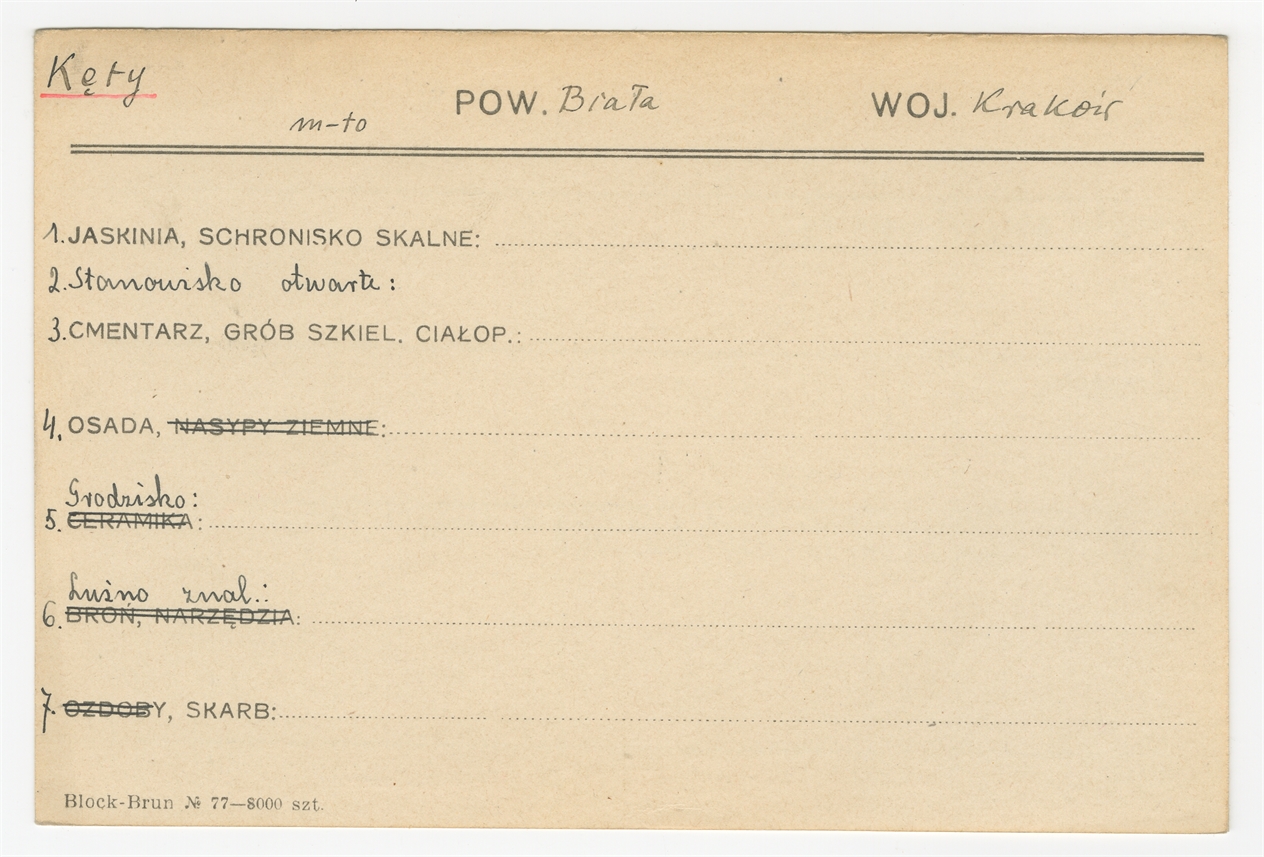 Kęty
m-to POW. Biała WOJ. Kraków
1. JASKINIA, SCHRONISKO SKALNE:
2. Stanowisko otwarte:
3. CMENTARZ, GRÓB SZKIEL. CIAŁOP.:
4. OSADA, NASYPY ZIEMNE:
Grodzisko:
5. CERAMIKA:
Luźno znal.:
6. BROŃ, NARZĘDZIA:
7. OZDOBY, SKARB:
Block-Brun № 77—8000 szt.